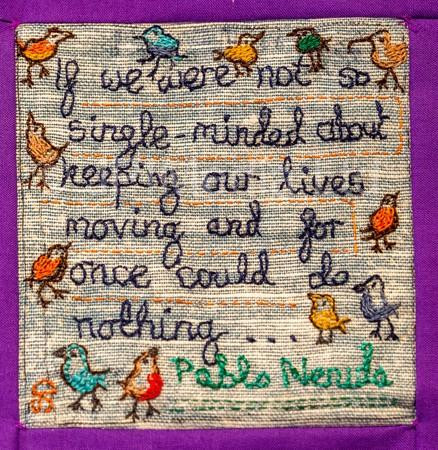 If we were not so
single-minded about
keeping our lives
moving and for
once could do
nothing...
Pablo Neruda